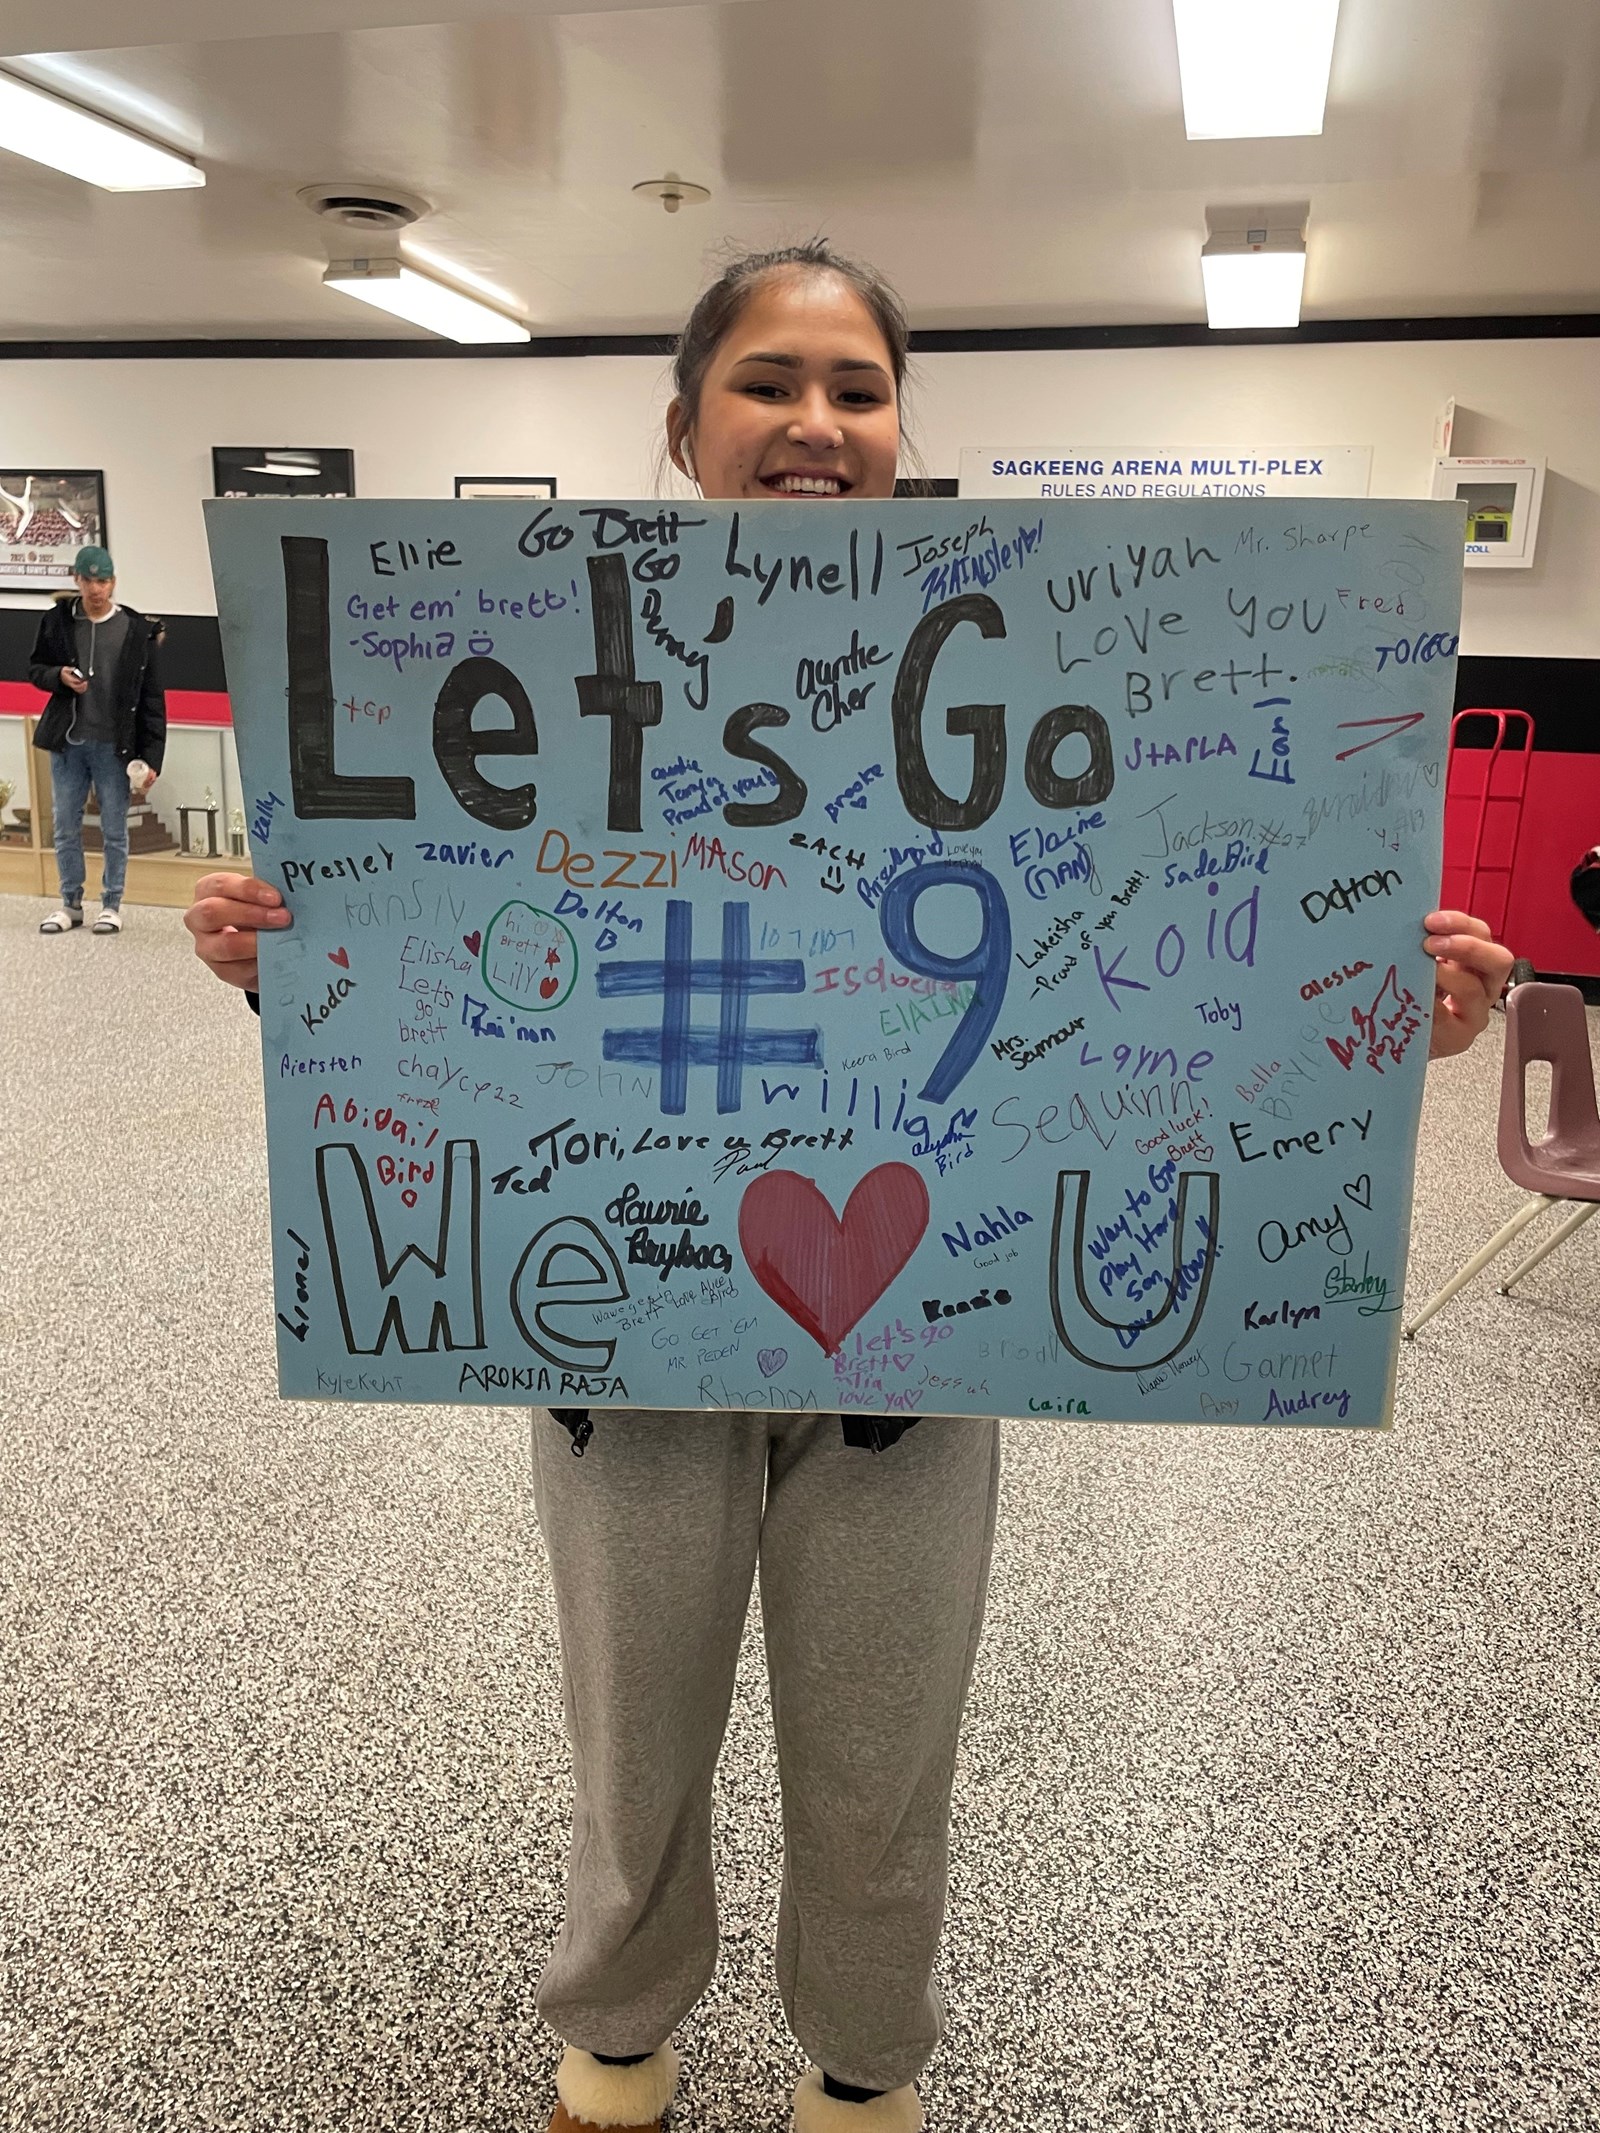 SAGKEENG ARENA MULTI-PLEX
RULES AND REGULATIONS
ZOLL
2021 2022
Let's Go
#9
We ♥ U
Ellie
Go Brett
Go
Lynell
Joseph
KAINSley♡!
uriyah
Mr. Sharpe
Get em' brett!
-Sophia
Love You
Brett.
Fred
auntie
Cher
Earl
auntie
Proud of you!
Brooke
Kelly
Presley
zavier
Dezzi
MASon
ZACH
Elaine
(NAN)
Jackson #27
Sade Bird
Dalton
Dolton
B
hi
Brett
Lily
Elisha
Let's
go
brett
Koda
Rai'non
Isabella
ElAINA
Lakeisha
-Proud of you Brett!
Koid
Toby
alesha
play hard
Piersten
chaycy 22
JOHN
Keera Bird
Mrs.
Seymour
Layne
Bella
Brylee
Abigail
Bird
Sequinn
Good luck!
Brett
Emery
Tori, Love u Brett
Paul
Ted
Bird
Laurie
Nahla
Good job
Way to Go
Play Hard
Son
Love Mom!!
Amy
Stanley
Karlyn
Lionel
Love Alice
Bird
Brett
GO GET 'EM
MR PEDEN
let's go
Brett♡
love ya♡
KyleKent
AROKIA RAJA
Rhonda
Caira
Garnet
Amy
Audrey